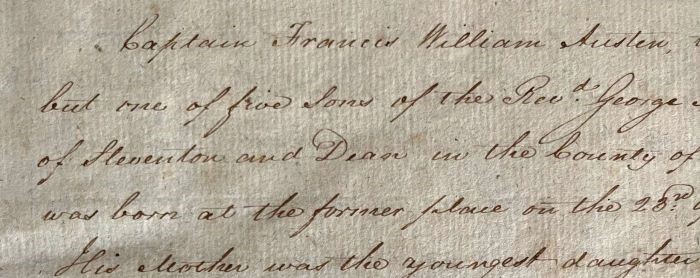 Captain Francis William Austen,
but one of five Sons of the Revd. George
of Steventon and Dean in the County of
was born at the former place on the 23rd
His Mother was the youngest daughter